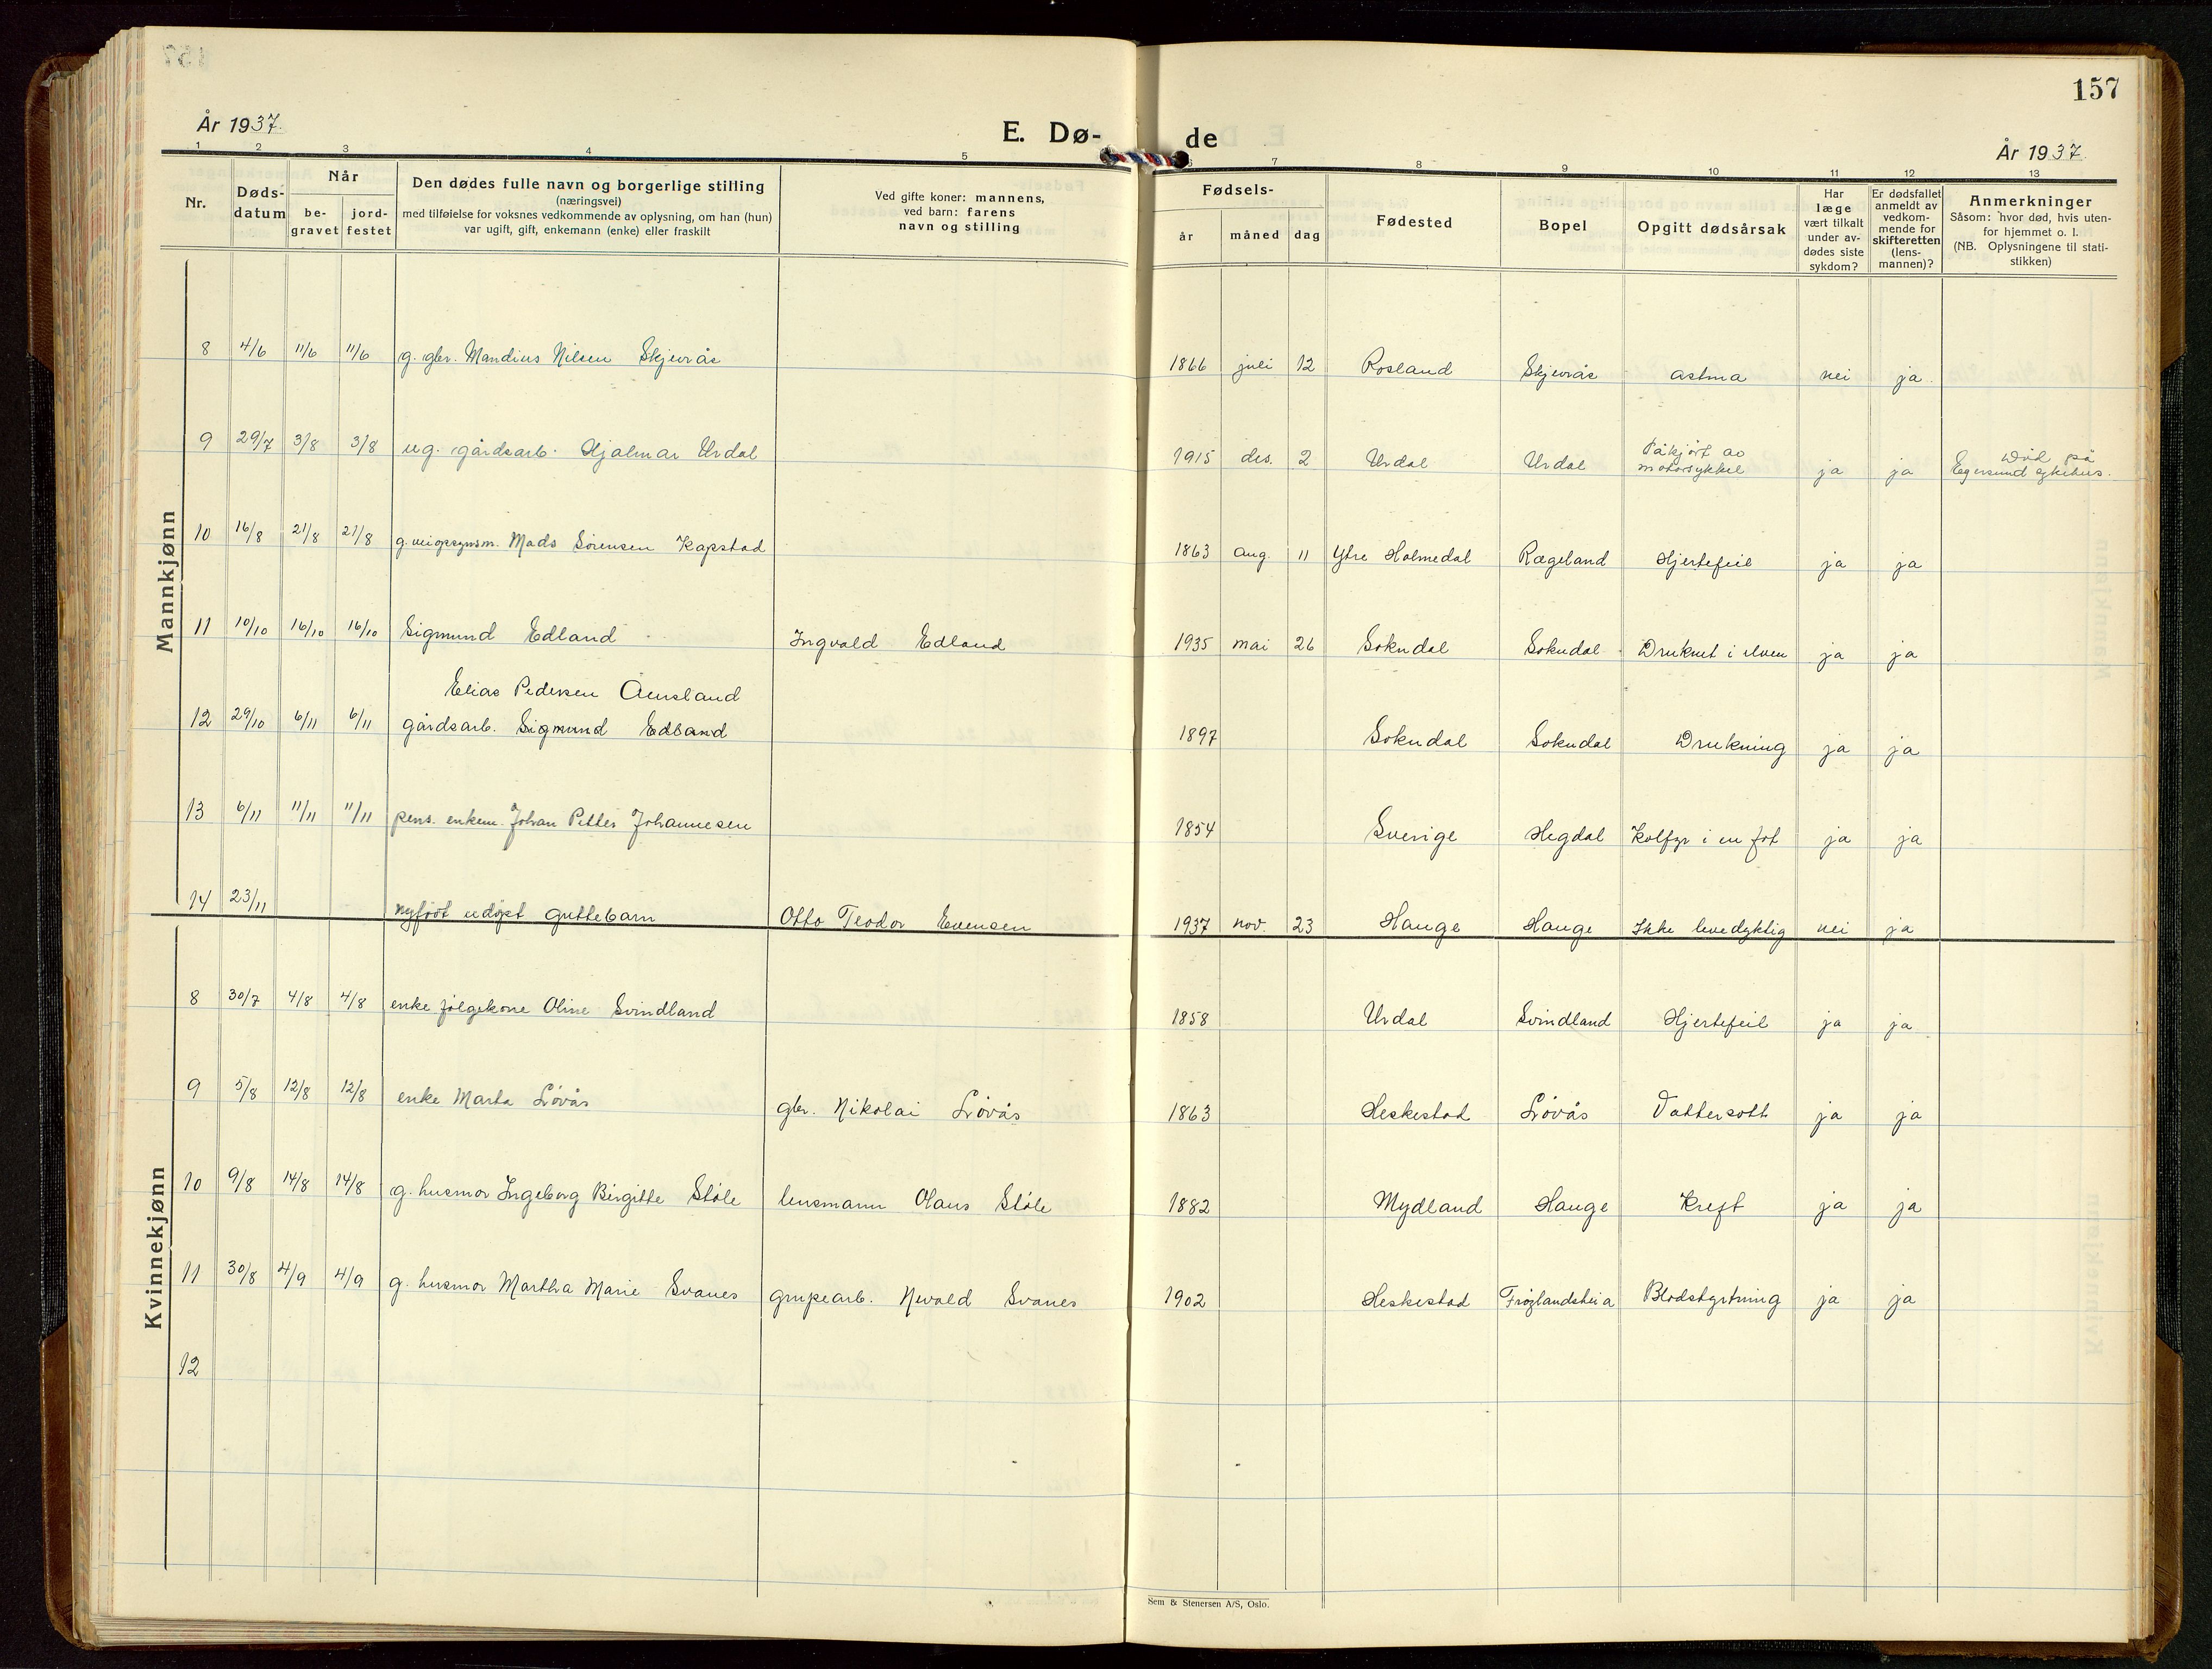 157
År 1937.
E. Dø-
de
År 1937.
1 2 3 4 5 6 7 8 9 10 11 12 13
Nr.
Døds-
datum
Når
be-
gravet
jord-
festet
Den dødes fulle navn og borgerlige stilling
(næringsvei)
med tilføielse for voksnes vedkommende av oplysning, om han (hun)
var ugift, gift, enkemann (enke) eller fraskilt
Ved gifte koner: mannens,
ved barn: farens
navn og stilling
Fødsels-
år måned dag
Fødested
Bopel
Opgitt dødsårsak
Har
læge
vært tilkalt
under av-
dødes siste
sykdom?
Er dødsfallet
anmeldt av
vedkom-
mende for
skifteretten
(lens-
mannen)?
Anmerkninger
Såsom: hvor død, hvis uten-
for hjemmet o. l.
(NB. Oplysningene til stati-
stikken)
Mannkjønn
8 4/6 11/6 11/6 g. gbr. Mandius Nilsen Skjevrås 1866 juli 12 Rosland Skjevrås astma nei ja
9 29/7 3/8 3/8 ug. gårdsarb. Hjalmar Urdal 1915 des. 2 Urdal Urdal Påkjørt av motorsykkel ja ja Død på Egersund sykehus.
10 16/8 21/8 21/8 g. veiopsynsm. Mads Sørensen Kapstad 1863 aug. 11 Ytre Holmedal Rægeland Hjertefeil ja ja
11 10/10 16/10 16/10 Sigmund Edland Ingvald Edland 1935 mai 26 Sokndal Sokndal Druknet i elven ja ja
Elias Pedersen Åensland
12 29/10 6/11 6/11 gårdsarb. Sigmund Edland 1897 Sokndal Sokndal Drukning ja ja
13 6/11 11/11 11/11 pens. enkem. Johan Petter Johannesen 1854 Sverige Hegdal Kolfyr i en fot ja ja
14 23/11 nyfødt udøpt guttebarn Otto Teodor Evensen 1937 nov. 23 Hauge Hauge Ikke levedyktig nei ja
Kvinnekjønn
8 30/7 4/8 4/8 enke følgekone Oline Svindland 1858 Urdal Svindland Hjertefeil ja ja
9 5/8 12/8 12/8 enke Marta Løvås gbr. Nikolai Løvås 1863 Heskestad Løvås Vattersott ja ja
10 9/8 14/8 14/8 g. husmor Ingeborg Birgitte Støle lensmann Olaus Støle 1882 Mydland Hauge Kreft ja ja
11 30/8 4/9 4/9 g. husmor Martha Marie Svanes grupearb. Nevald Svanes 1902 Heskestad Frøylandsheia Blodstyrtning ja ja
12
Sem & Stenersen A/S, Oslo.